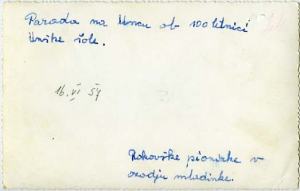 Parada na Uncu ob 100 letnici
Unške šole.
16. VI 54
Rakovške pionirke v
ozadju mladinke.